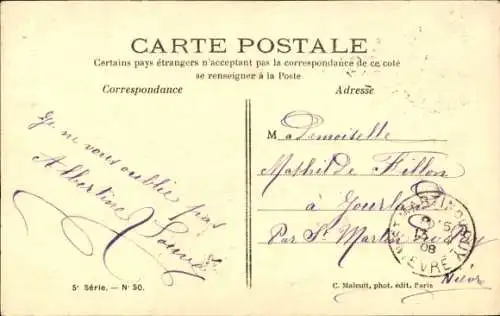 CARTE POSTALE
Certains pays étrangers n'acceptent pas la correspondance de ce coté
se renseigner à la Poste
Correspondance
Adresse
Je ne vous oublie pas
Albertine
Mademoiselle
Mathilde Fillon
à
Par St. Martin
Nièvre
08
NIEVRE
5e Série. — No 50.
C. Malcuit, phot. édit. Paris